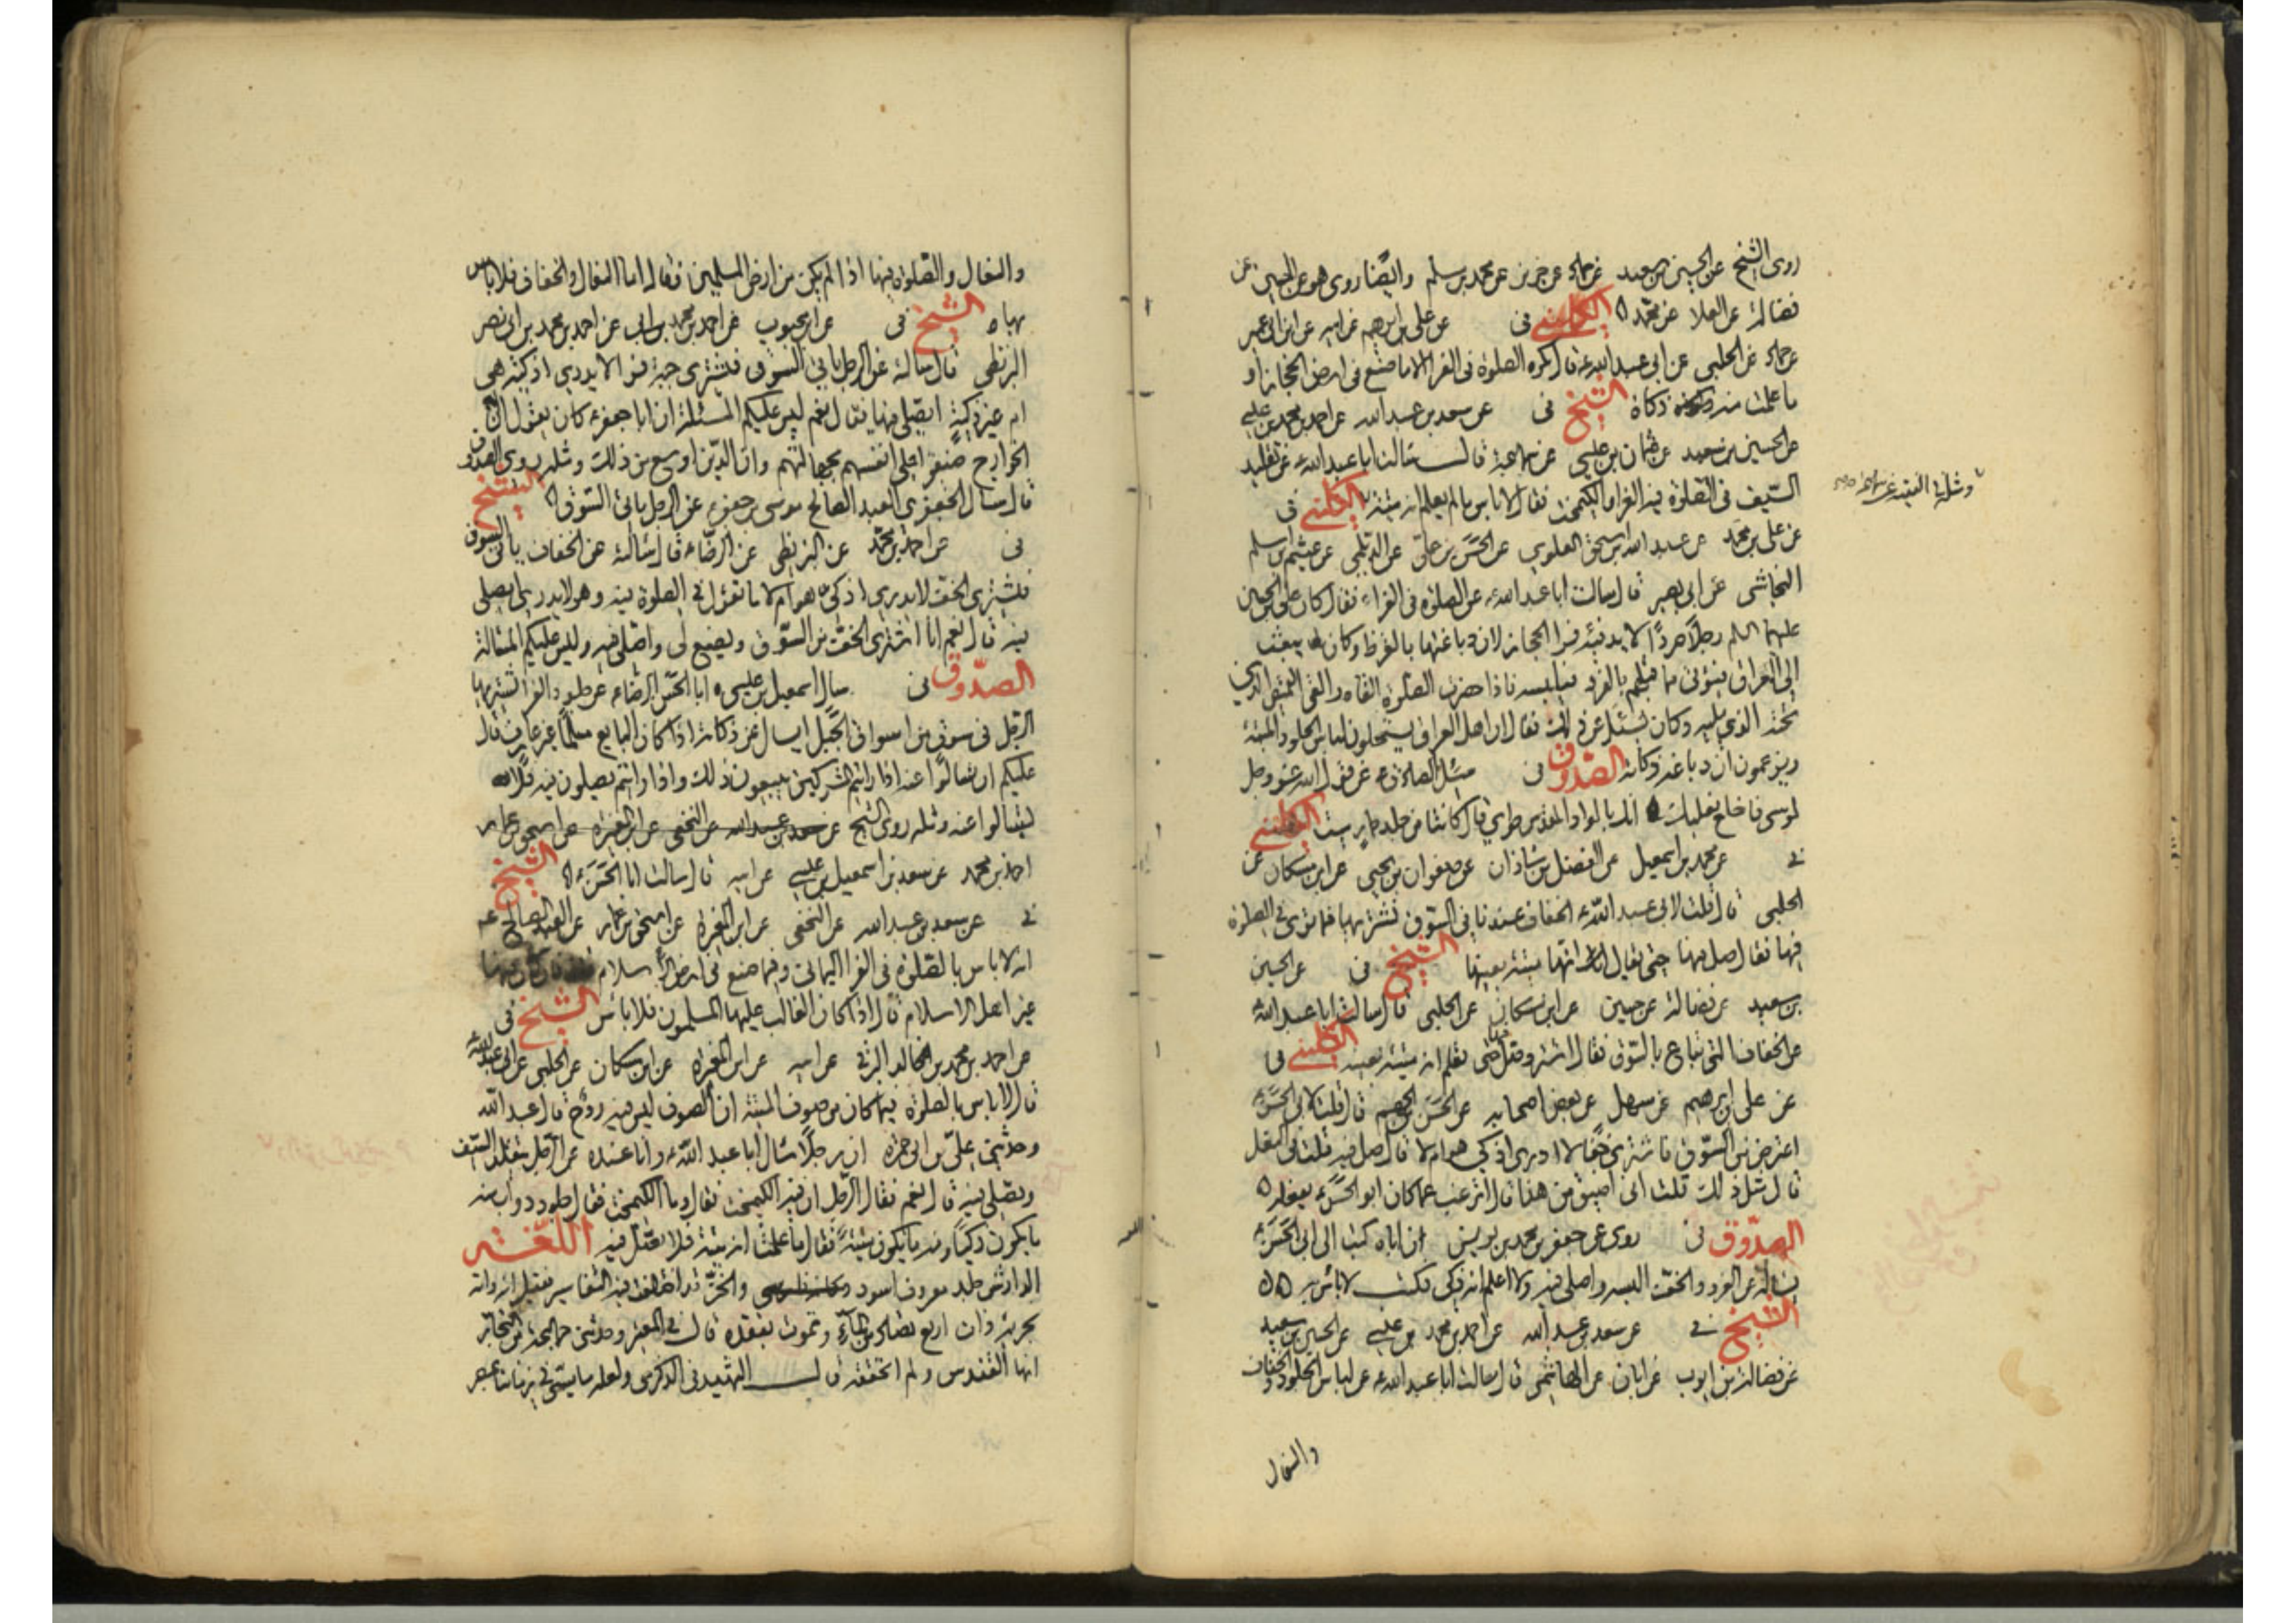 روى الشيخ عن الحسين بن سعيد عن حماد عن حريز عن محمد بن مسلم وايضا روى هو عن الحسين عن
فضالة عن العلا عن محمد ه الكليني في عن علي بن ابرهيم عن ابيه عن ابن ابي عمير
عن حماد عن الحلبي عن ابي عبد الله ع قال تكره الصلوة في الفرا الا ما صنع في ارض الحجاز او
ما علمت منه ذكاة الشيخ في عن سعد بن عبد الله عن احمد بن محمد بن عيسى
عن الحسين بن سعيد عن عثمان بن عيسى عن سماعة قال سالت ابا عبد الله ع عن تقليد
السيف في الصلوة فيه الفرا والكيمخت فقال لا باس ما لم يعلم انه ميتة الكليني في
ومثله في الفقيه عن سماعة
عن علي بن محمد عن عبد الله بن اسحق العلوي عن الحسن بن علي عن الديلمي عن عيثم بن اسلم
النجاشي عن ابي بصير قال سالت ابا عبد الله ع عن الصلوة في الفراء فقال كان علي بن الحسين
عليهما السلم رجلا صردا لا يدفئه فرا الحجاز لان دباغتها بالقرظ وكان يبعث
الى العراق فيؤتى مما قبلهم بالفرو فيلبسه فاذا حضرت الصلوة القاه والقى القميص الذي
تحته الذي يليه وكان يسئل عن ذلك فقال ان اهل العراق يستحلون لباس الجلود الميتة
ويزعمون ان دباغه ذكاته الصدوق في سئل الصادق ع عن قول الله عز وجل
لموسى فاخلع نعليك انك بالواد المقدس طوى قال كانتا من جلد حمار ميت الكليني
في عن محمد بن اسمعيل عن الفضل بن شاذان عن صفوان بن يحيى عن ابن مسكان عن
الحلبي قال قلت لابي عبد الله ع الخفاف عندنا في السوق نشتريها فما ترى في الصلوة
فيها فقال صل فيها حتى يقال لك انها ميتة بعينها الشيخ في عن الحسين
بن سعيد عن فضالة عن حسين عن ابن مسكان عن الحلبي قال سالت ابا عبد الله ع
عن الخفاف التي تباع بالسوق فقال اشتر وصل فيها حتى تعلم انه ميتة بعينه الكليني في
عن علي بن ابرهيم عن سهل عن بعض اصحابه عن الحسن بن الجهم قال قلت لابي الحسن ع
اعترض في السوق فاشتري خفا لا ادري اذكي هو ام لا قال صل فيه قلت فالنعل
قال مثل ذلك قلت اني اضيق من هذا قال اترغب عما كان ابو الحسن ع يفعله ه
الصدوق في روى عن جعفر بن محمد بن يونس ان اباه كتب الى ابي الحسن ع
يسأله عن الفرو والخف البسه واصلي فيه ولا اعلم انه ذكي فكتب لا باس به ه ه
الشيخ في عن سعد بن عبد الله عن احمد بن محمد بن عيسى عن الحسين بن سعيد
عن فضالة بن ايوب عن ابان عن الهاشمي قال سالت ابا عبد الله ع عن لباس الجلود والخفاف
والنعال
والنعال والصلوة فيها اذا لم يكن من ارض المسلمين فقال اما النعال والخفاف فلا باس
بها ه الشيخ في عن ابن محبوب عن احمد بن محمد عن احمد بن محمد بن ابي نصر
البزنطي قال سالته عن الرجل ياتي السوق فيشتري جبة فرو لا يدري اذكية هي
ام غير ذكية ايصلي فيها فقال نعم ليس عليكم المسئلة ان ابا جعفر ع كان يقول ان
الخوارج ضيقوا على انفسهم بجهالتهم وان الدين اوسع من ذلك ومثله روى الصدوق
قال سال الجعفري العبد الصالح موسى بن جعفر ع عن الرجل ياتي السوق ه الشيخ
في عن احمد بن محمد عن البزنطي عن الرضا ع قال سالته عن الخفاف ياتي السوق
فيشتري الخف لا يدري اذكي هو ام لا ما تقول في الصلوة فيه وهو لا يدري ايصلي
فيه قال نعم انا اشتري الخف من السوق ويصنع لي واصلي فيه وليس عليكم المسالة
الصدوق في سال اسمعيل بن عيسى ابا الحسن الرضا ع عن جلود الفرا يشتريها
الرجل في سوق من اسواق الجبل ايسال عن ذكاته اذا كان البايع مسلما غير عارف قال
عليكم ان تسالوا عنه اذا رايتم المشركين يبيعون ذلك واذا رايتم يصلون فيه فلا
تسالوا عنه ومثله روى الشيخ عن سعد بن عبد الله عن النخعي عن ابن المغيرة عن اسحق بن عمار
احمد بن محمد عن سعد بن اسمعيل بن عيسى عن ابيه قال سالت ابا الحسن ع ه الشيخ
في عن سعد بن عبد الله عن النخعي عن ابن المغيرة عن اسحق بن عمار عن العبد الصالح ع
انه لا باس بالصلوة في الفرا اليماني وفيما صنع في ارض الاسلام قلت فان كان فيها
غير اهل الاسلام قال اذا كان الغالب عليها المسلمون فلا باس الشيخ في
عن احمد بن محمد بن خالد البرقي عن ابيه عن ابن المغيرة عن ابن مسكان عن الحلبي عن ابي عبد الله ع
قال لا باس بالصلوة فيما كان من صوف الميتة ان الصوف ليس فيه روح قال عبد الله
وحدثني علي بن ابي حمزة ان رجلا سال ابا عبد الله ع وانا عنده عن الرجل يتقلد السيف
ويصلي فيه قال نعم فقال الرجل ان فيه الكيمخت فقال وما الكيمخت فقال جلود دواب منه
ما يكون ذكيا ومنه ما يكون ميتة فقال ما علمت انه ميتة فلا تصل فيه اللغة
الدارش جلد معروف اسود والخز قد اختلف فيه التفاسير فقيل انه دابة
بحرية ذات اربع تصاد من الماء وتموت بفقده قال في المعتبر وحدثني جماعة من التجار
انها القندس ولم اتحققه قال الشهيد في الذكرى ولعله ما يسمى في زماننا بمصر